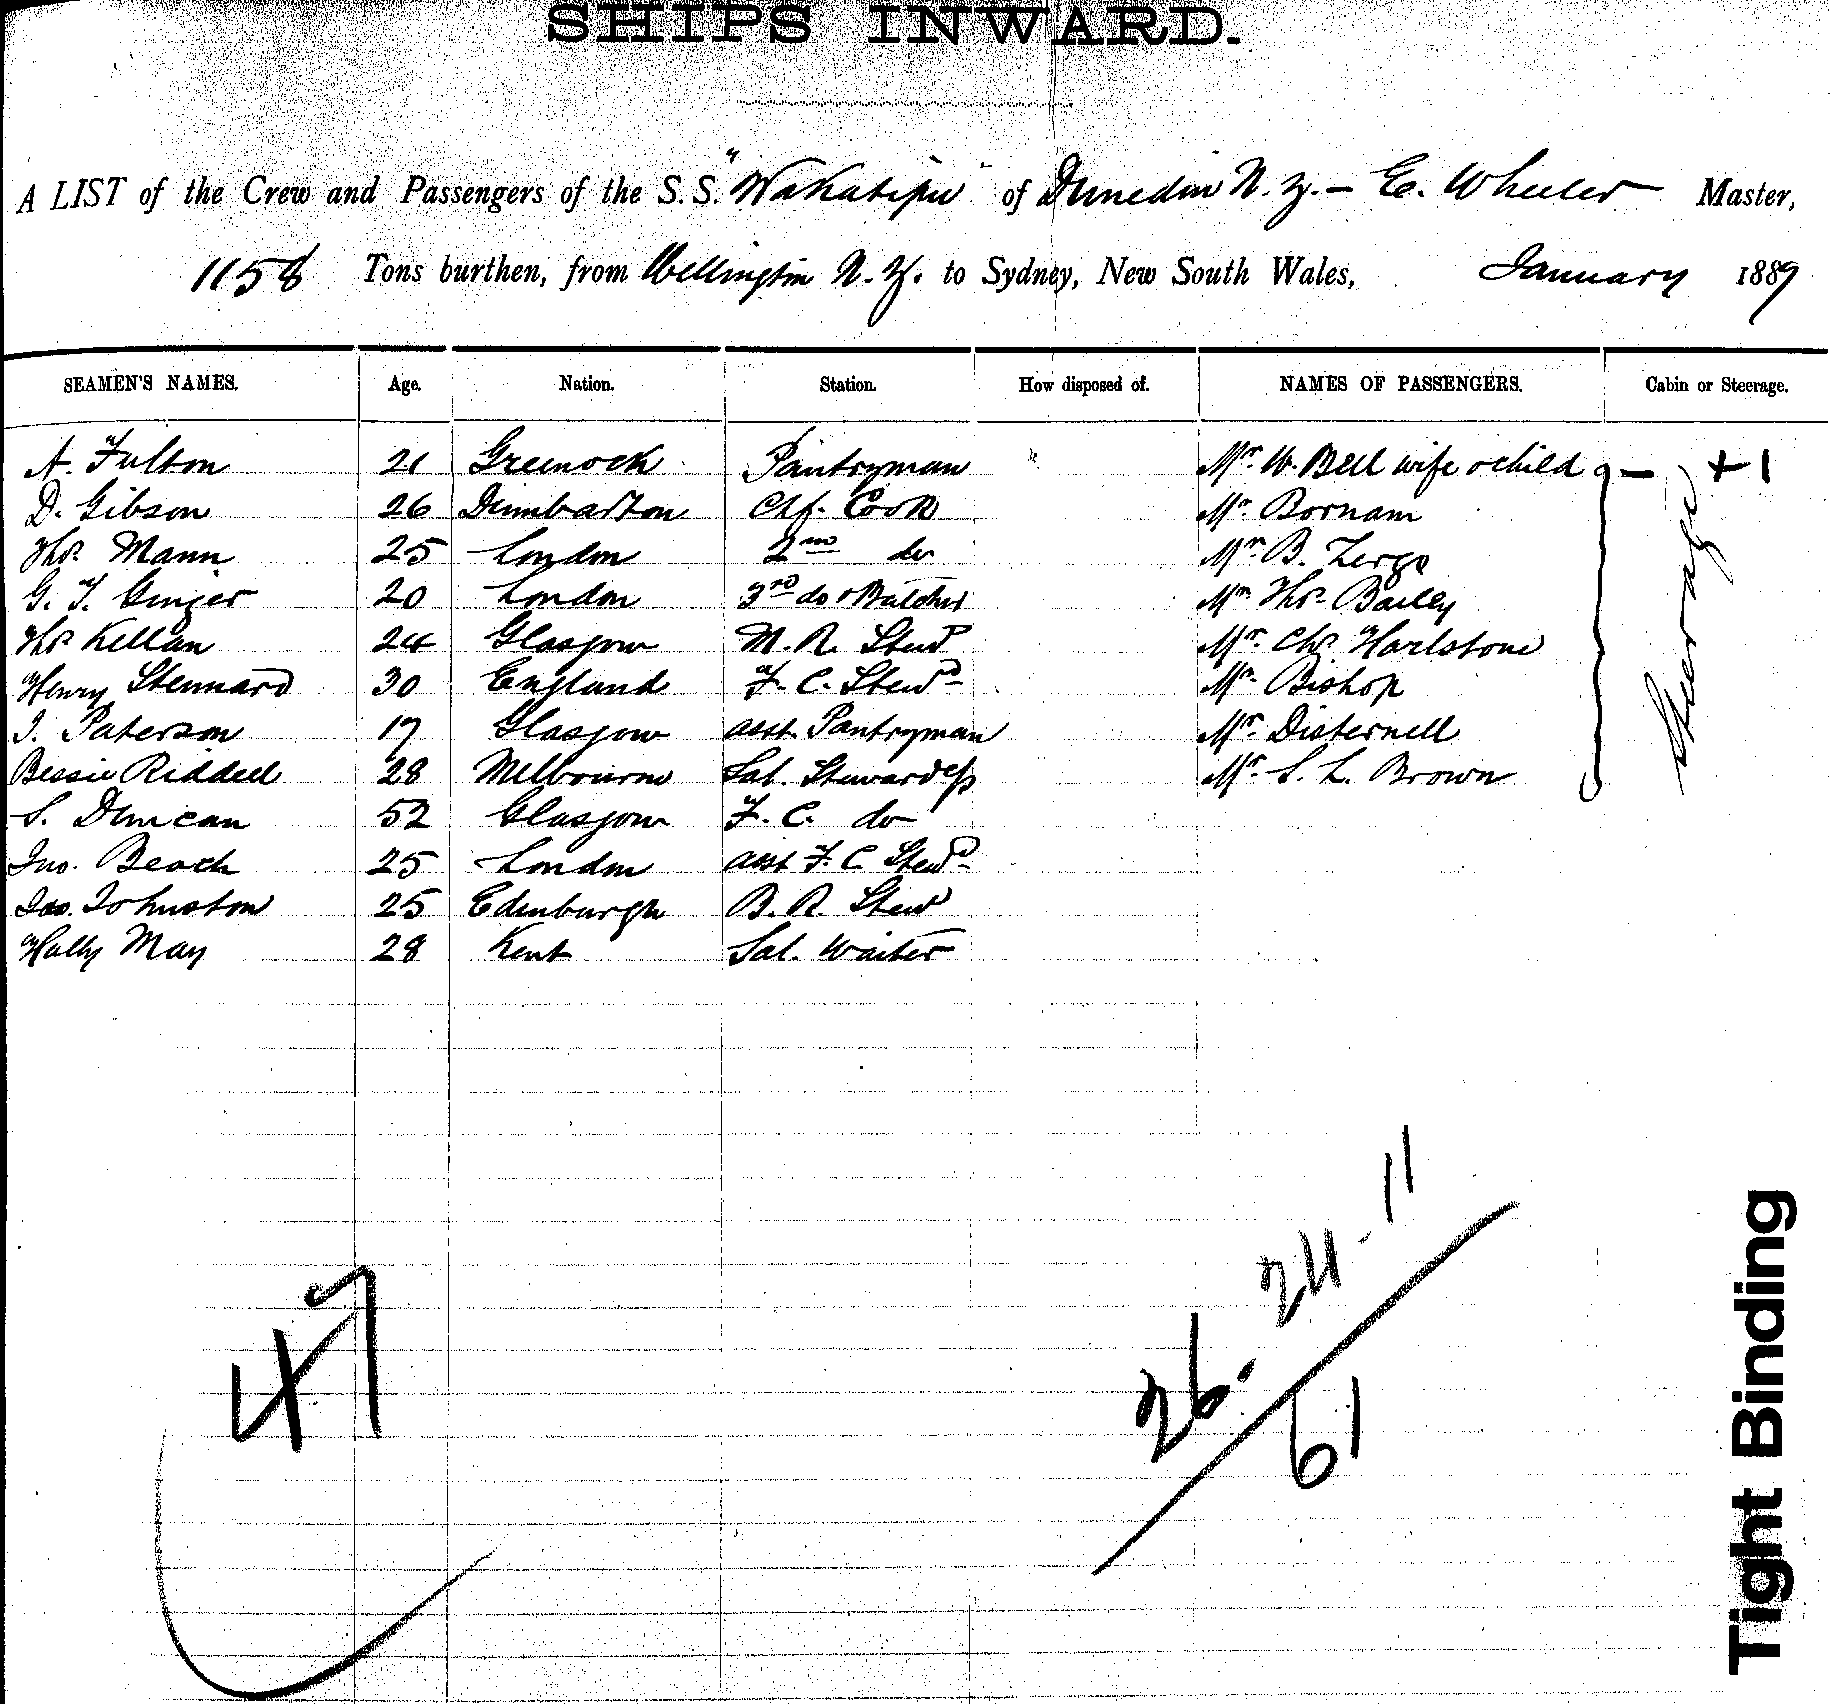 SHIPS INWARD.
A LIST of the Crew and Passengers of the S.S. "Wakatipu" of Dunedin N.Z. – E. Wheeler Master,
1158 Tons burthen, from Wellington N.Z. to Sydney, New South Wales, January 1889
SEAMEN'S NAMES. Age. Nation. Station. How disposed of. NAMES OF PASSENGERS. Cabin or Steerage.
A. Fulton 21 Greenock Pantryman Mr. W. Bell wife & child – + 1
D. Gibson 26 Dumbarton Chf. Cook Mr. Bornam
Thos. Mann 25 London 2nd do Mr. B.
G. 20 London 3rd do & Butcher Mr. Thos. Bailey
Thos Kellan 24 Glasgow M. R. Stewd Mr. Chs. Harlstone
Henry Stennard 30 England F. C. Stewd Mr. Bishop
J. Paterson 17 Glasgow asst. Pantryman Mr. Disternell
Bessie Riddell 28 Melbourne Sal. Stewardess Mr. S. L. Brown
S. Duncan 52 Glasgow F. C. do
Jno. Beach 25 London asst F. C. Stewd
Jas. Johnston 25 Edinburgh B. R. Stewd
May 28 Kent Sal. Waiter
Steerage
47
26. 24 - 11
61
Tight Binding